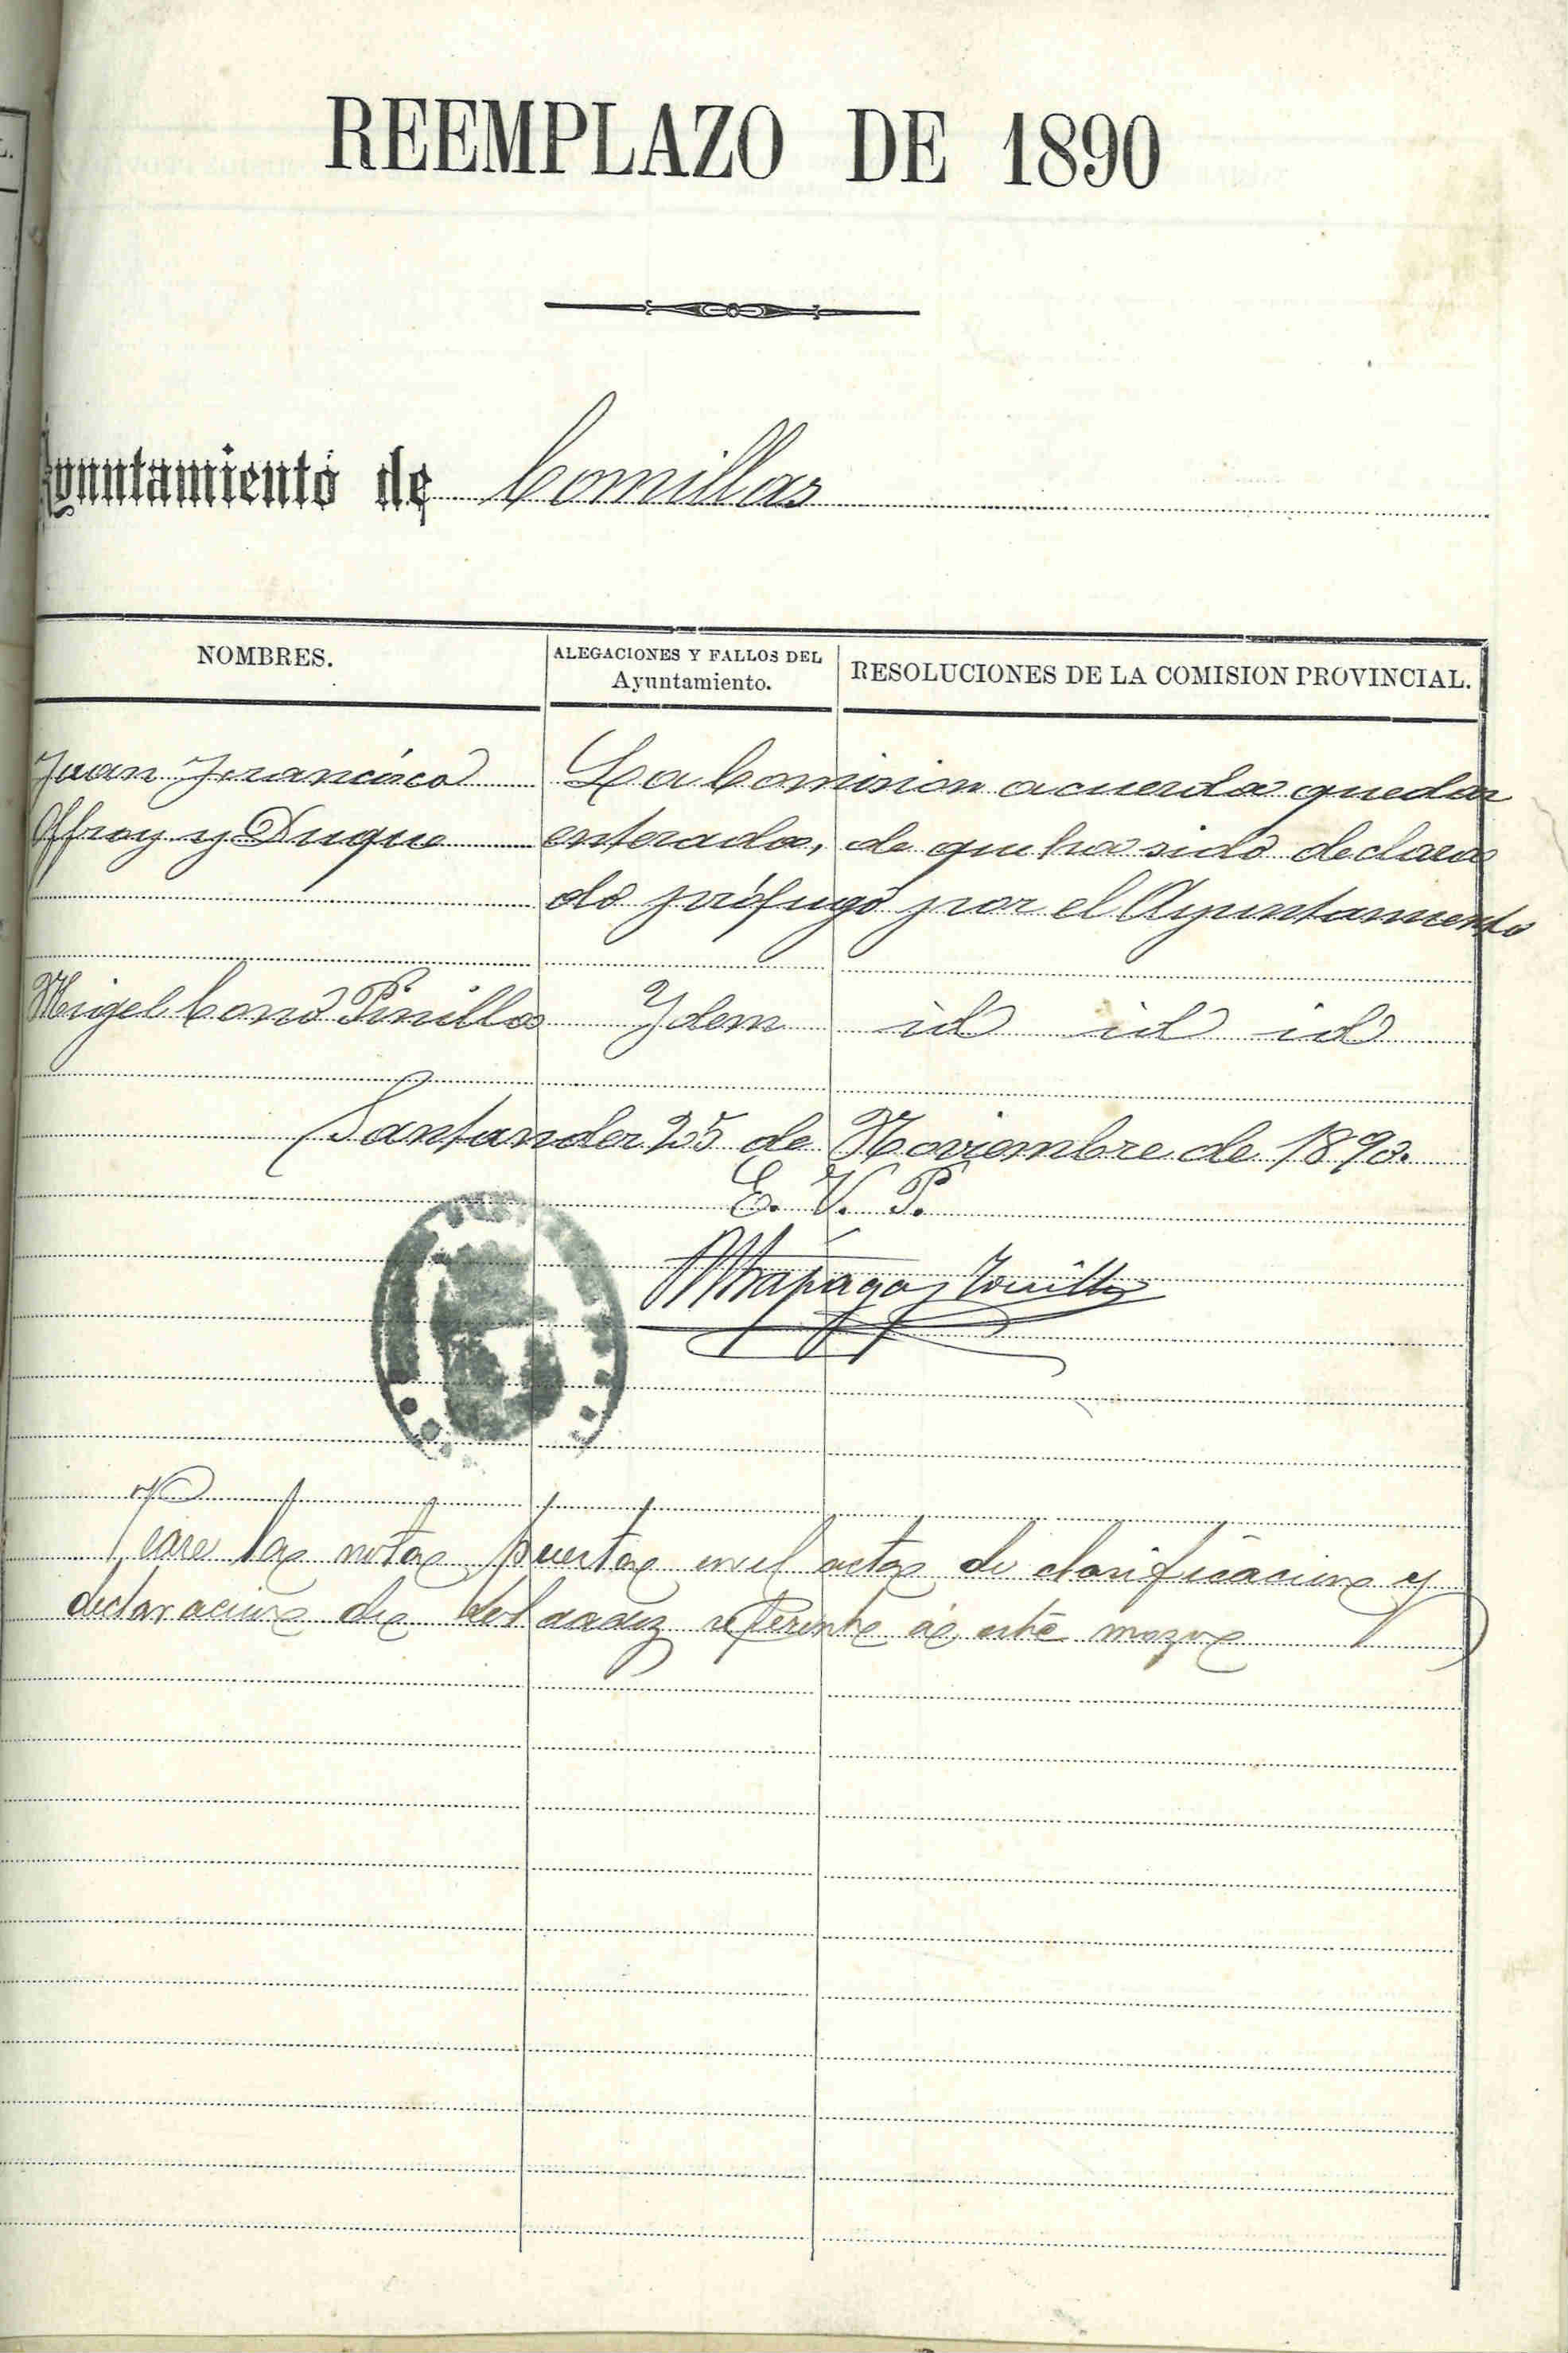 REEMPLAZO DE 1890
Ayuntamiento de Comillas
NOMBRES.
ALEGACIONES Y FALLOS DEL
Ayuntamiento.
RESOLUCIONES DE LA COMISION PROVINCIAL.
Juan Francisco La Comision acuerda quedar
y Duque enterada, de que ha sido declara
do prófugo por el Ayuntamiento
Migel Cono Pinilla Ydem id id id
Santander 25 de Noviembre de 1890.
E. V. P.
las notas puestas en el acta de clasificacion y
declaracion de soldados referente á este mozo